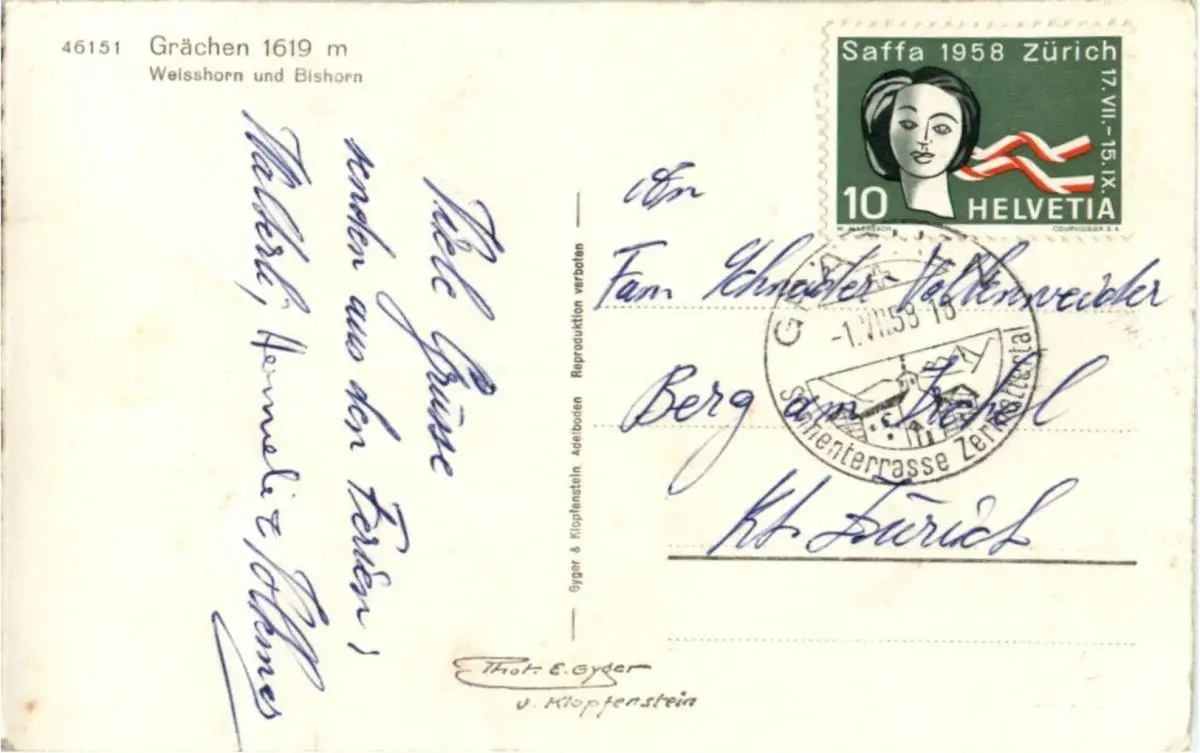 46151 Grächen 1619 m
Weisshorn und Bishorn
Viele Grüsse
senden aus den Ferien;
Walberti, Hanneli &
Saffa 1958 Zürich
17. VII.-15. IX.
10 HELVETIA
COURVOISIER S.A.
GRÄCHEN
-1.VII.58 18
Sonnenterrasse Zermattertal
An
Fam Schneider-Vollenweider
Berg am Irchel
Kt. Zürich
Gyger & Klopfenstein, Adelboden Reproduktion verboten
Phot. E. Gyger
u. Klopfenstein